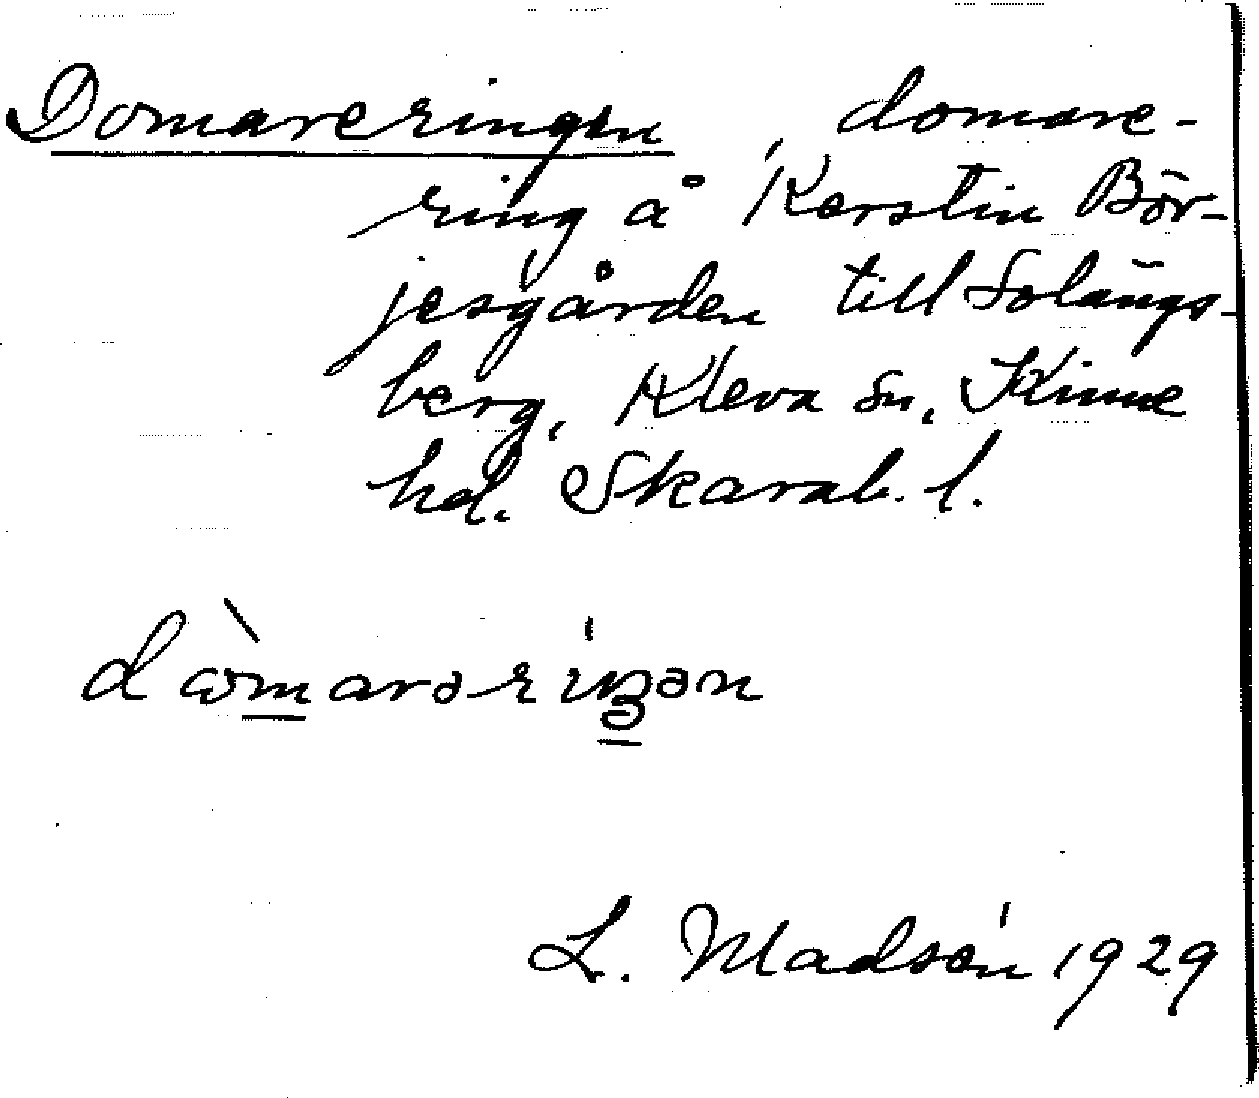 Domareringen, domare-
ring å Kerstin Bör-
jesgården till Solängs-
berg, Kleva sn, Kinne
hd. Skarab. l.
dὼmarəríŋən
L. Madsén 1929